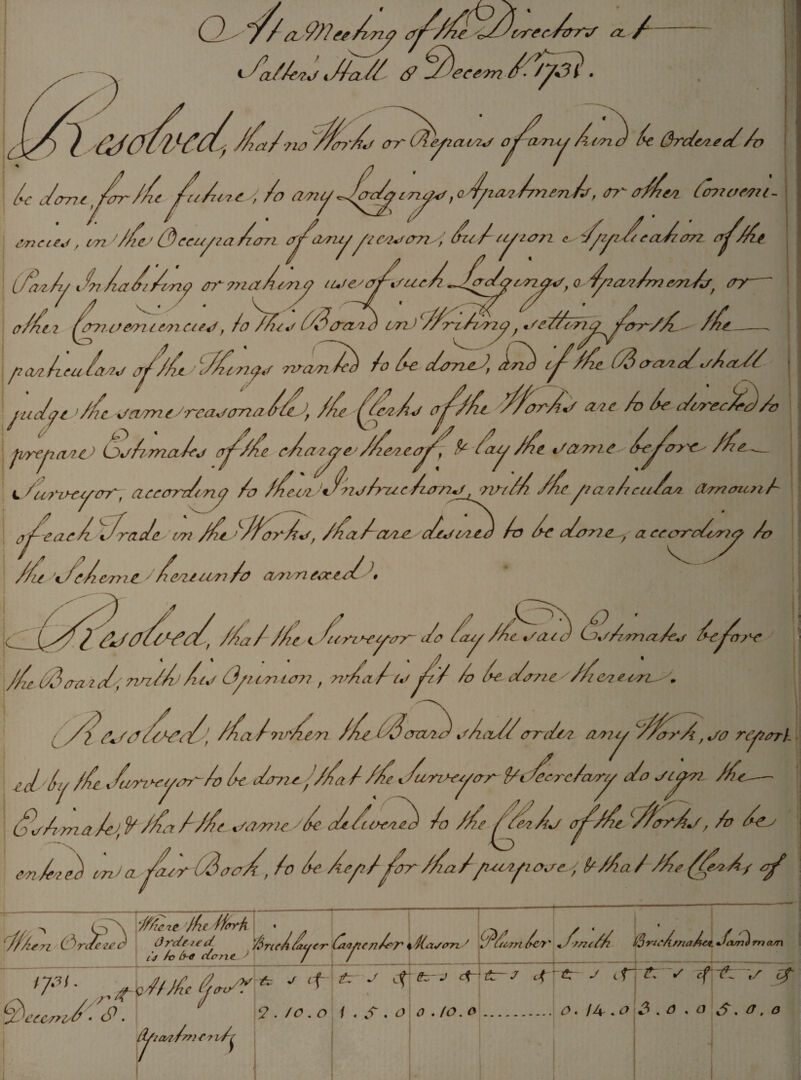 At a Meeting of the Directors at
Salters Hall 8 Decemb.r 1731.
Resolved, that no Works or Repairs of any kind be Ordered to
be done, for the future, to any Lodgings, Apartments, or other Conveni-
encies, in the Occupation of any person, but upon Application of the
Party Inhabiting or making use of such Lodgings, Apartments, or
other Conveniencies, to this Board in Writing, setting forth the
particulars of the Things wanted to be done, and if the Board shall
judge the same reasonable, the Clerks of the Works are to be directed to
prepare Estimates of the charge thereof, & lay the same before the
Surveyor, according to their Instructions, with the particular amount
of each Trade in the Works, that are desired to be done, according to
the Scheme hereunto annexed.
Resolved, that the Surveyor do lay the said Estimates before
the Board, with his Opinion, what is fit to be done therein.
Resolved, that when the Board shall order any Work, so report
ed by the Surveyor to be done, that the Surveyor & Secretary do sign the
Estimate, & that the same be delivered to the Clerks of the Works, to be
entered in a fair Book, to be kept for that purpose, & that the Clerks of
When Ordered | Where the Work Ordered is to be done | Bricklayer | Carpenter | Mason | Plumber | Smith | Brickmaker | Sandman
1731. | At the Gov.rs | £ s d | £ s d | £ s d | £ s d | £ s d | £ s d | £ s d
Decemb.r 8. | Apartments | 2.10.0 | 1.5.0 | 0.10.0 | .......... | 0.14.0 | 3.0.0 | 5.0.0